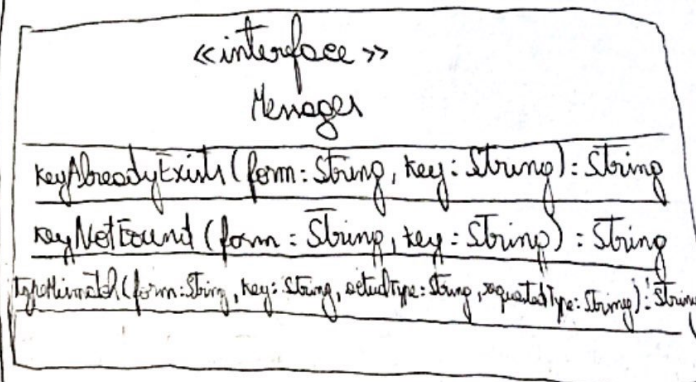 «interface»
Messages
keyAlreadyExists(form: String, key: String): String
keyNotFound(form: String, key: String): String
typeMismatch(form: String, key: String, actualType: String, requestedType: String): String